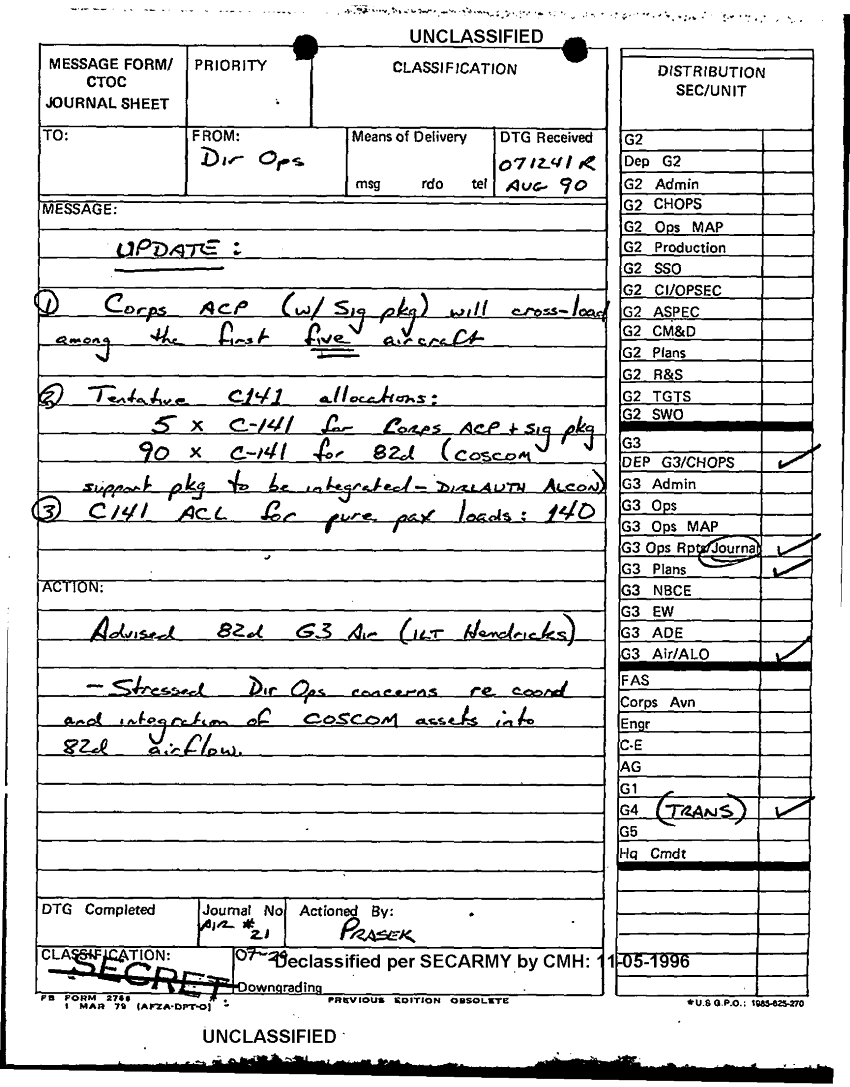 UNCLASSIFIED
MESSAGE FORM/
CTOC
JOURNAL SHEET
PRIORITY
CLASSIFICATION
TO:
FROM:
Dir Ops
Means of Delivery
msg rdo tel
DTG Received
071241R
AUG 90
MESSAGE:
UPDATE:
① Corps ACP (w/ Sig pkg) will cross-load
among the first five aircraft
② Tentative C141 allocations:
5 x C-141 for Corps ACP + sig pkg
90 x C-141 for 82d (COSCOM
support pkg to be integrated - DIRLAUTH ALCON)
③ C141 ACL for pure pax loads: 140
ACTION:
Advised 82d G3 Air (1LT Hendricks)
- Stressed Dir Ops concerns re coord
and integration of COSCOM assets into
82d airflow.
DTG Completed
Journal No
AIR #
21
Actioned By:
PRASEK
CLASSIFICATION:
SECRET
Declassified per SECARMY by CMH: 11-05-1996
Downgrading
FB FORM 2766
1 MAR 79 (AFZA-DPT-O)
PREVIOUS EDITION OBSOLETE
UNCLASSIFIED
DISTRIBUTION
SEC/UNIT
G2
Dep G2
G2 Admin
G2 CHOPS
G2 Ops MAP
G2 Production
G2 SSO
G2 CI/OPSEC
G2 ASPEC
G2 CM&D
G2 Plans
G2 R&S
G2 TGTS
G2 SWO
G3
DEP G3/CHOPS ✓
G3 Admin
G3 Ops
G3 Ops MAP
G3 Ops Rpts/Journal ✓
G3 Plans ✓
G3 NBCE
G3 EW
G3 ADE
G3 Air/ALO ✓
FAS
Corps Avn
Engr
C-E
AG
G1
G4 (TRANS) ✓
G5
Hq Cmdt
*U.S G.P.O.: 1985-625-270